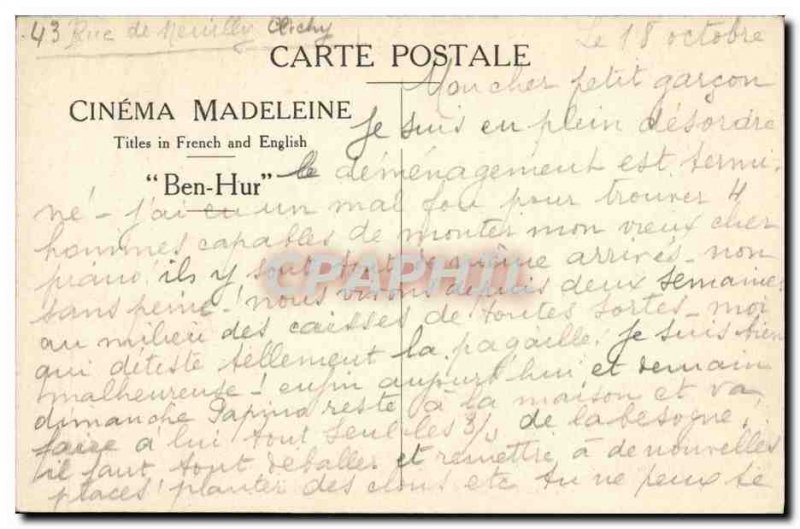 43 Rue de Neuilly Clichy
Le 18 octobre
CARTE POSTALE
CINÉMA MADELEINE
Titles in French and English
"Ben-Hur"
Mon cher petit garçon
Je suis en plein désordre
le déménagement est termi-
né - j'ai eu un mal fou pour trouver 4
hommes capables de monter mon vieux cher
piano ils y sont tout de même arrivés - non
sans peine - ! nous vivons depuis deux semaines
au milieu des caisses de toutes sortes - moi
qui déteste tellement la pagaille. Je suis bien
malheureuse - ! enfin aujourd'hui et demain
dimanche reste à la maison et va
faire à lui tout seul les 3/4 de la besogne.
il faut tout déballer et remettre à de nouvelles
places planter des clous etc tu ne peux te
CPAPHIL